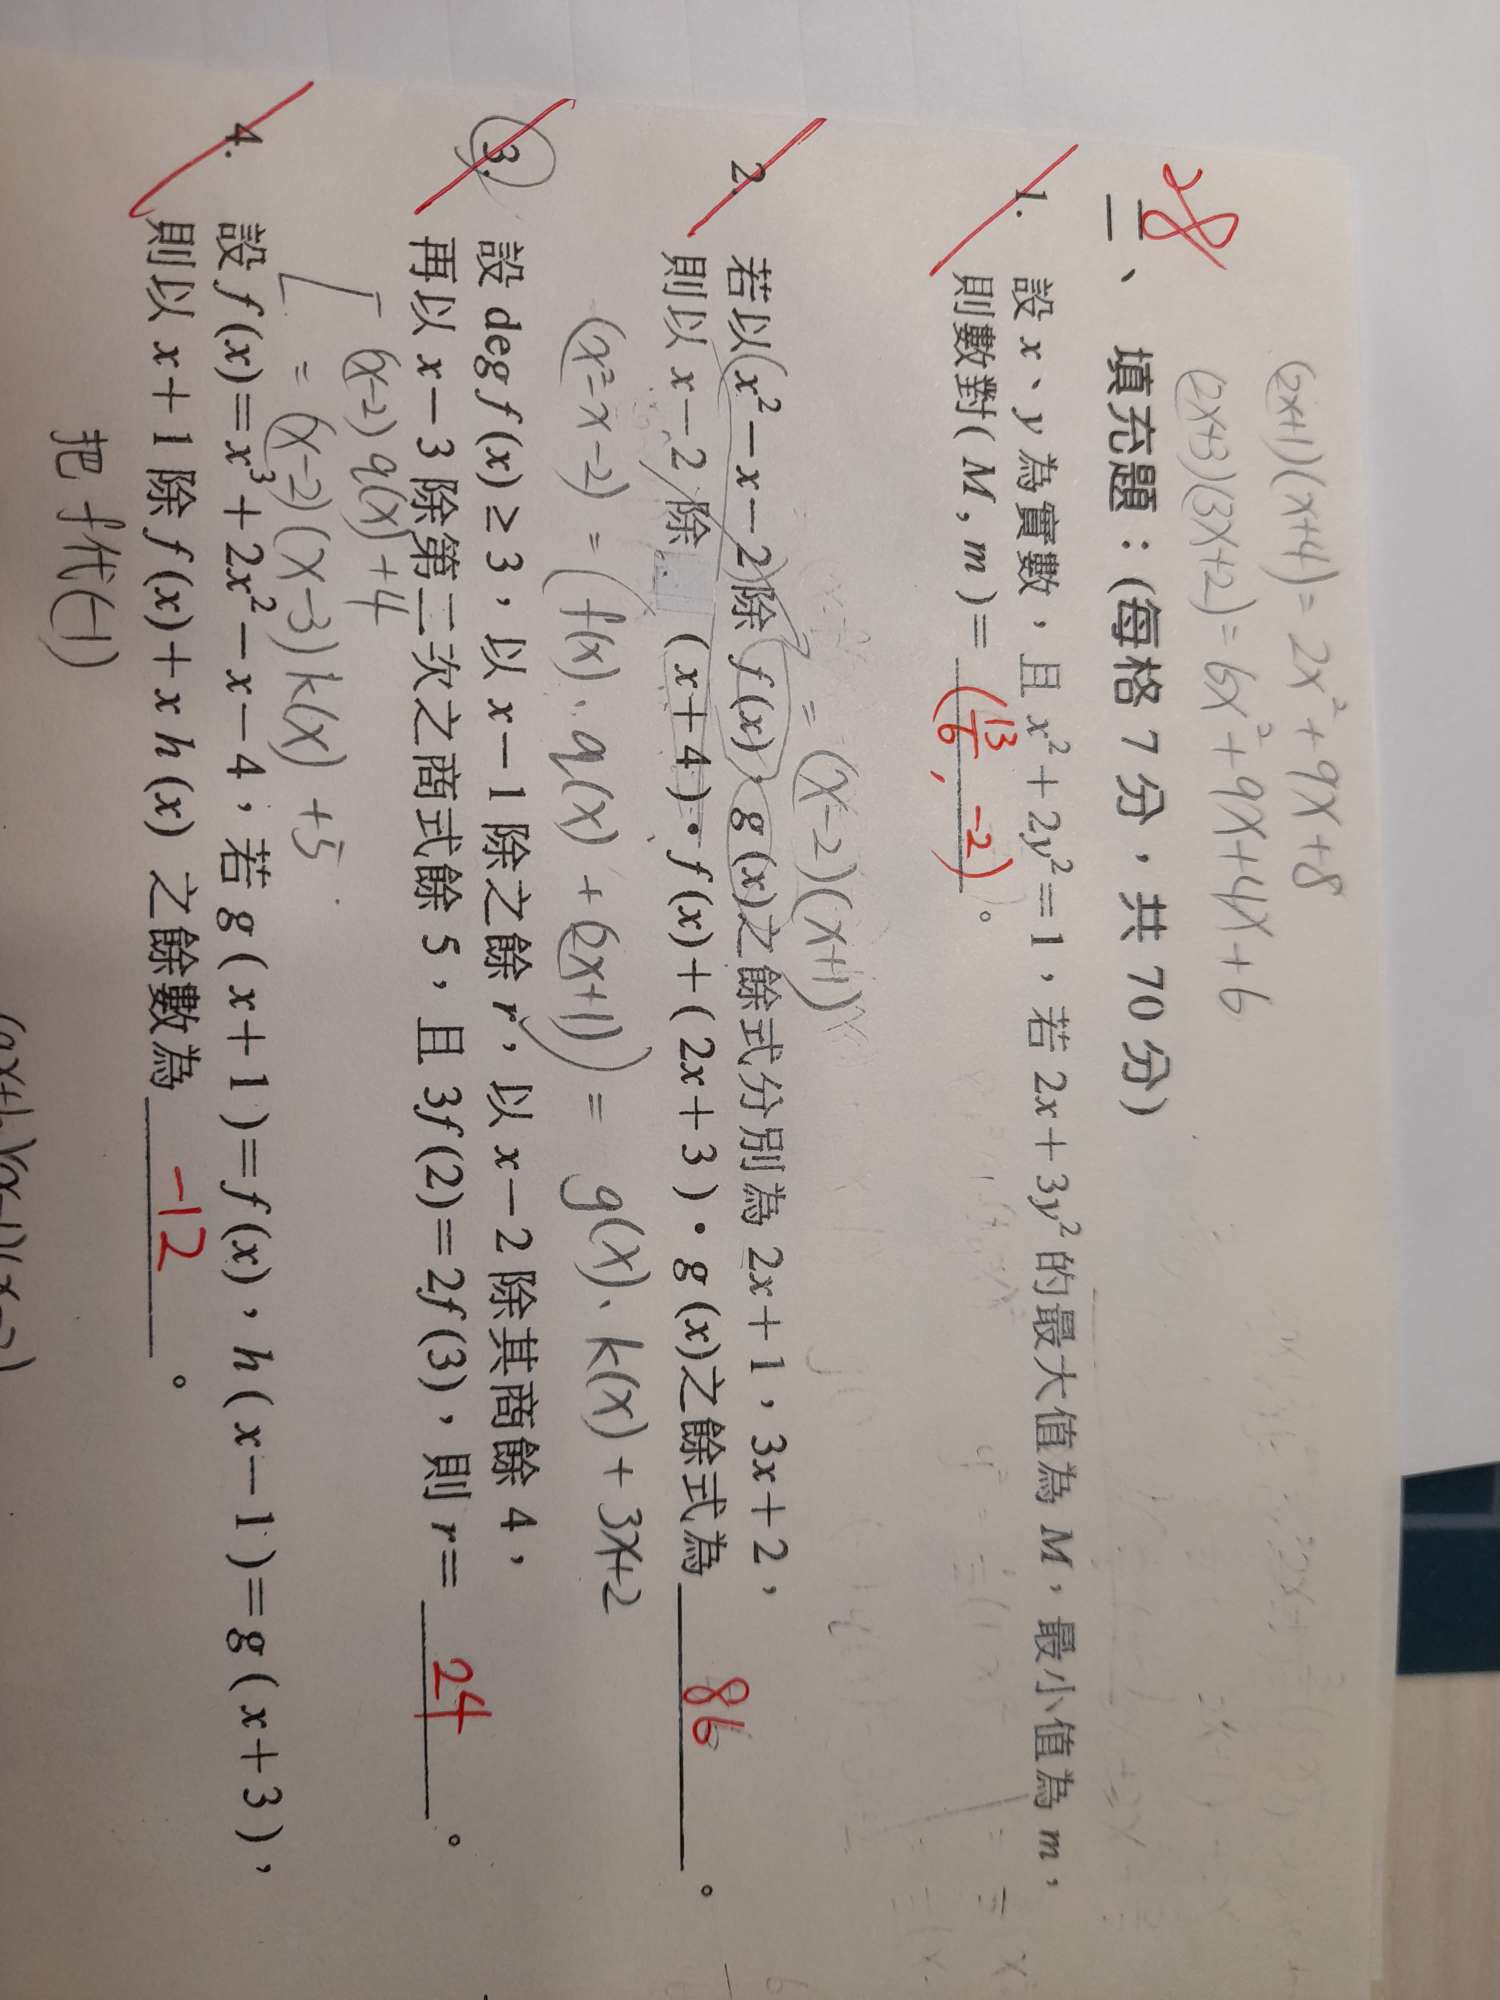 (2x+1)(x+4) = 2x²+9x+8
(2x+3)(3x+2) = 6x²+9x+4x+6
28
二、填充題：(每格 7 分，共 70 分)
1. 設 x、y 為實數，且 x²+2y²=1，若 2x+3y² 的最大值為 M，最小值為 m，
則數對(M, m)= (13/6, -2)。
= (x-2)(x+1)
2. 若以(x²-x-2)除 f(x)，g(x)之餘式分別為 2x+1，3x+2，
則以 x-2 除 (x+4)·f(x)+(2x+3)·g(x)之餘式為 86。
(x²-x-2) = (f(x)、q(x) + 2x+1) = g(x)、k(x) + 3x+2
3. 設 deg f(x) ≥ 3，以 x-1 除之餘 r，以 x-2 除其商餘 4，
再以 x-3 除第二次之商式餘 5，且 3f(2)=2f(3)，則 r= 24。
(x-2) q(x) +4
= (x-2)(x-3) k(x) +5
4. 設 f(x)=x³+2x²-x-4，若 g(x+1)=f(x)，h(x-1)=g(x+3)，
則以 x+1 除 f(x)+x h(x) 之餘數為 -12。
把 f 代(-1)